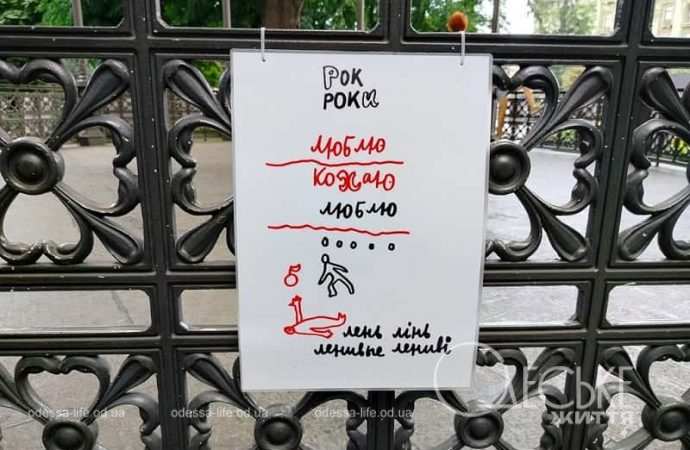 Рок
РОКи
люблю
кохаю
люблю
лень лінь
ленивые лениві
Одеське
життя
odessa-life.od.ua odessa-life.od.ua odessa-life.od.ua odessa-life.od.ua